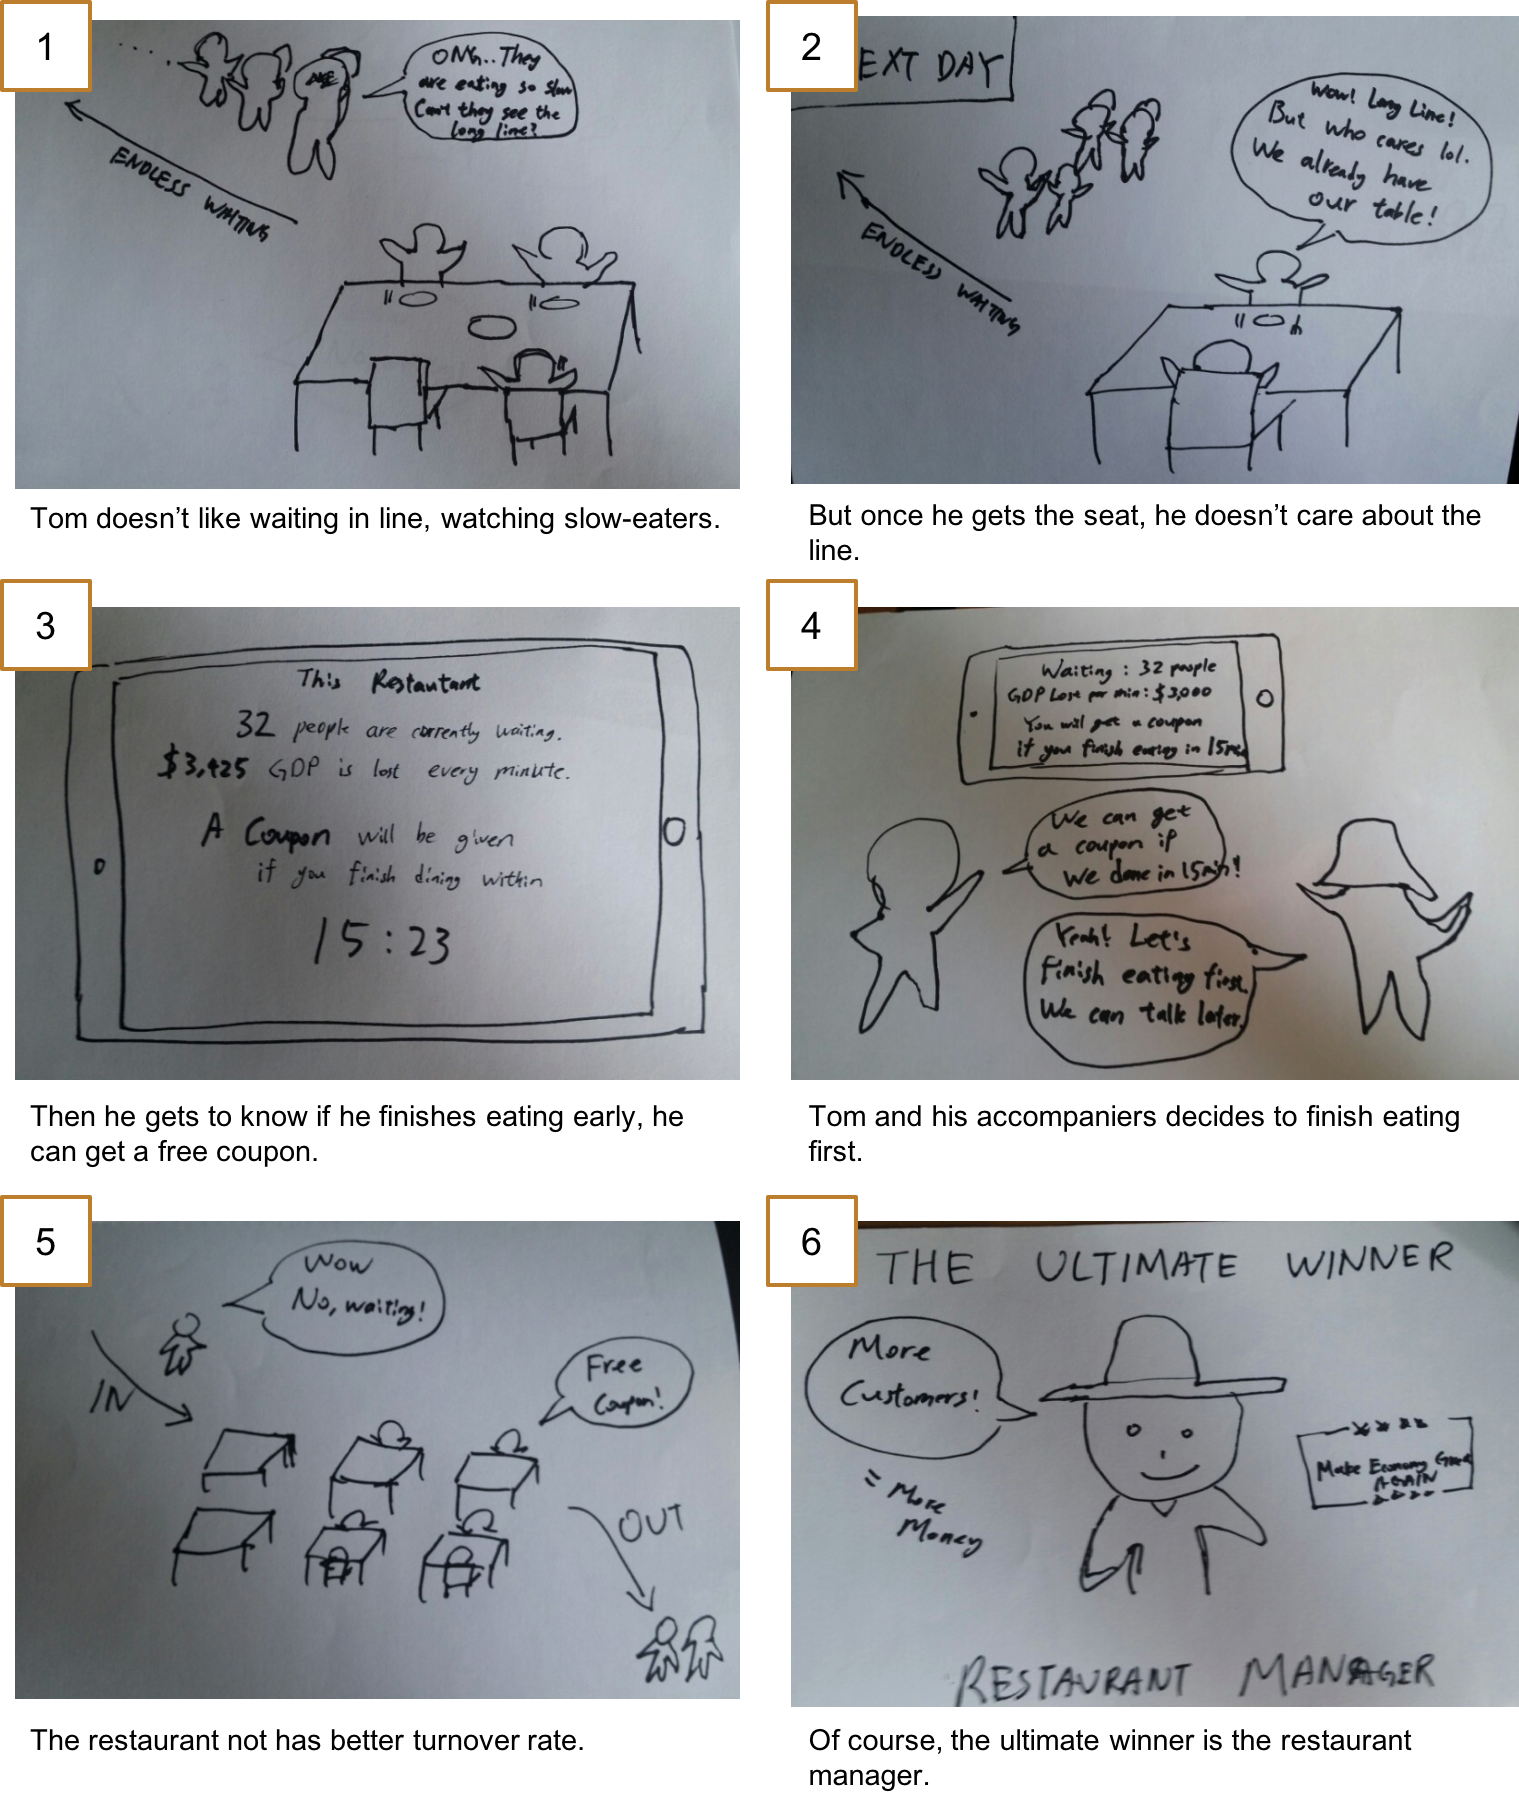 1
OMG.. They
are eating so slow
Can't they see the
long line?
ENDLESS WAITING
Tom doesn't like waiting in line, watching slow-eaters.
2
EXT DAY
Wow! Long Line!
But who cares lol.
We already have
our table!
ENDLESS WAITING
But once he gets the seat, he doesn't care about the
line.
3
This Restautant
32 people are currently waiting.
$3,425 GDP is lost every minute.
A Coupon will be given
if you finish dining within
15:23
Then he gets to know if he finishes eating early, he
can get a free coupon.
4
Waiting : 32 people
GDP Lose per min: $3,000
You will get a coupon
if you finish eating in 15
We can get
a coupon if
we done in 15min!
Yeah! Let's
finish eating first.
We can talk later.
Tom and his accompaniers decides to finish eating
first.
5
Wow
No, waiting!
IN
Free
Coupon!
OUT
The restaurant not has better turnover rate.
6
THE ULTIMATE WINNER
More
Customers!
= More
Money
Make Economy Great
AGAIN
RESTAURANT MANAGER
Of course, the ultimate winner is the restaurant
manager.